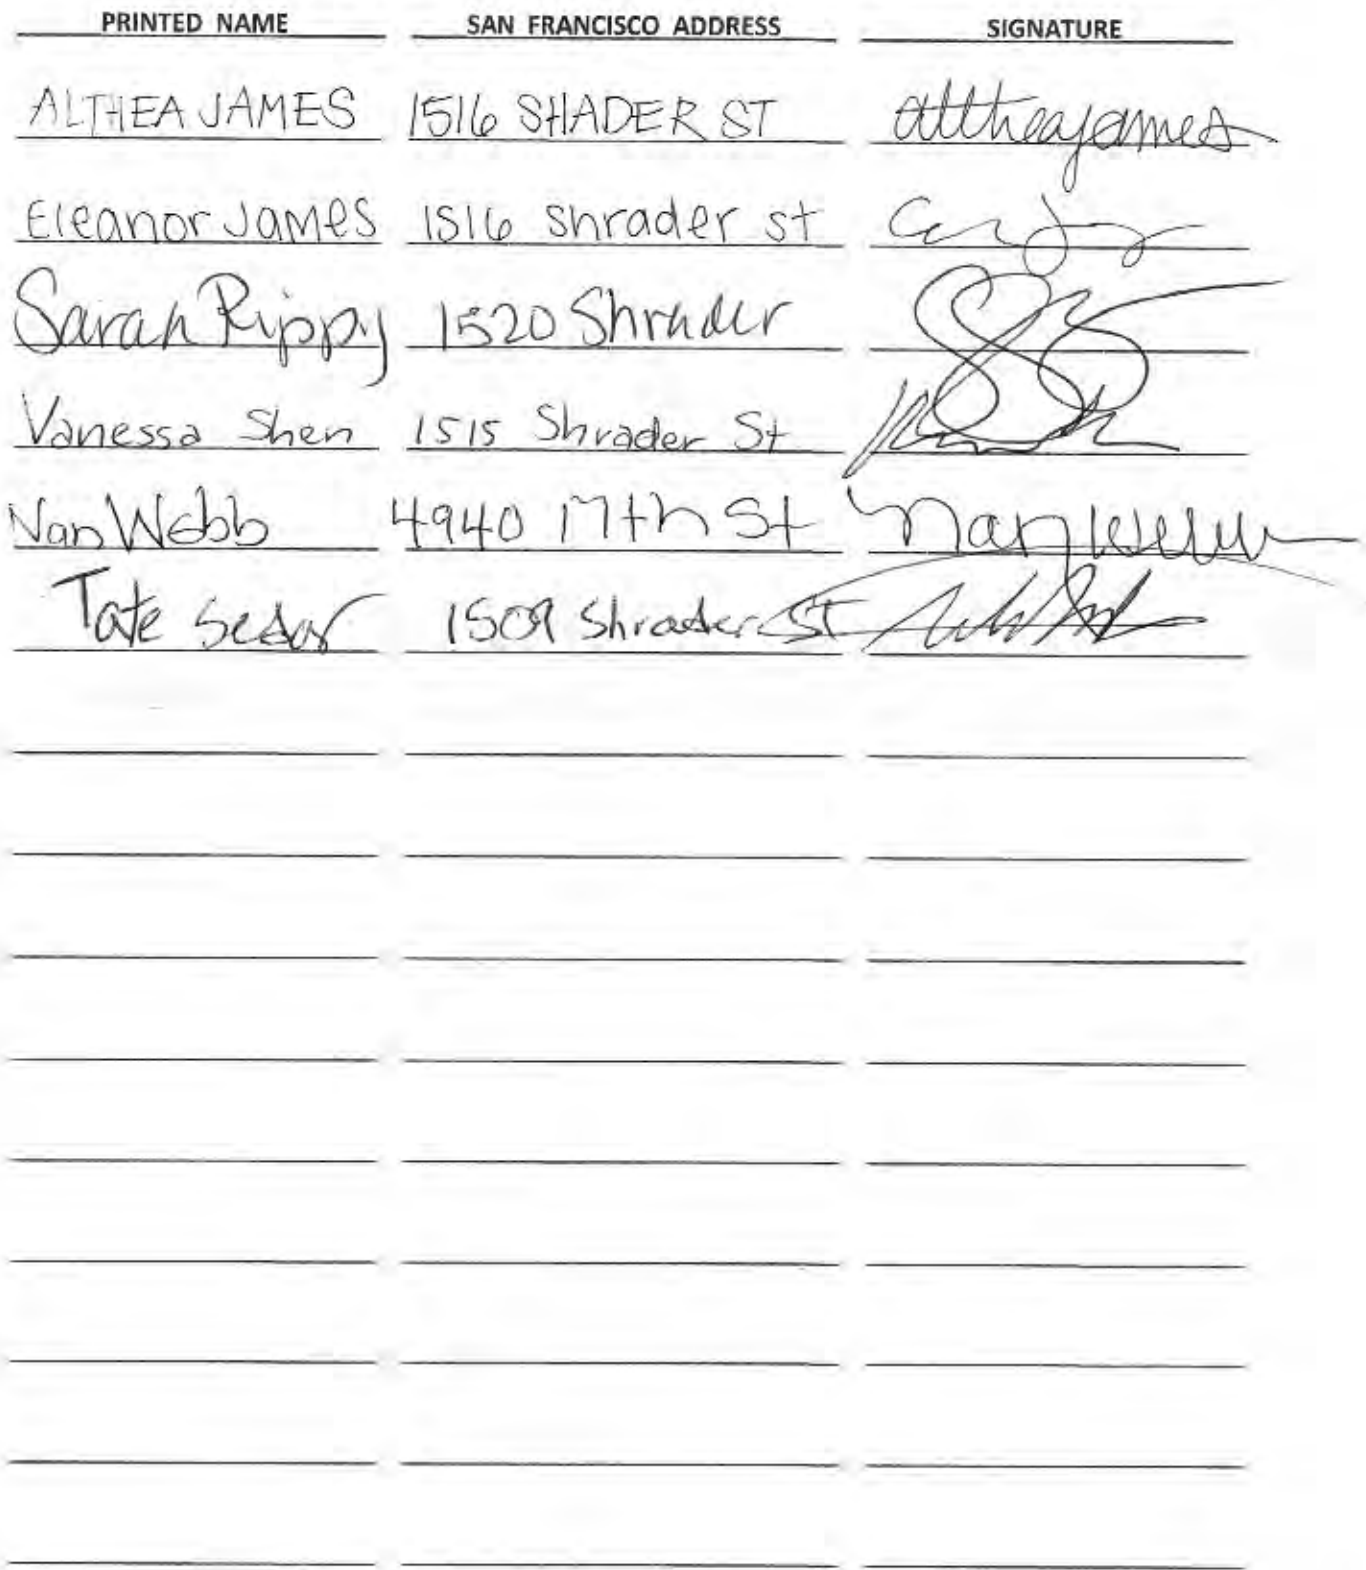 PRINTED NAME SAN FRANCISCO ADDRESS SIGNATURE
ALTHEA JAMES 1516 SHADER ST altheajames
Eleanor James 1516 Shrader st
Sarah Rippy 1520 Shrader
Vanessa Shen 1515 Shrader St
Nan Webb 4940 17th St Nan Webb
Tate Sedar 1509 Shrader ST